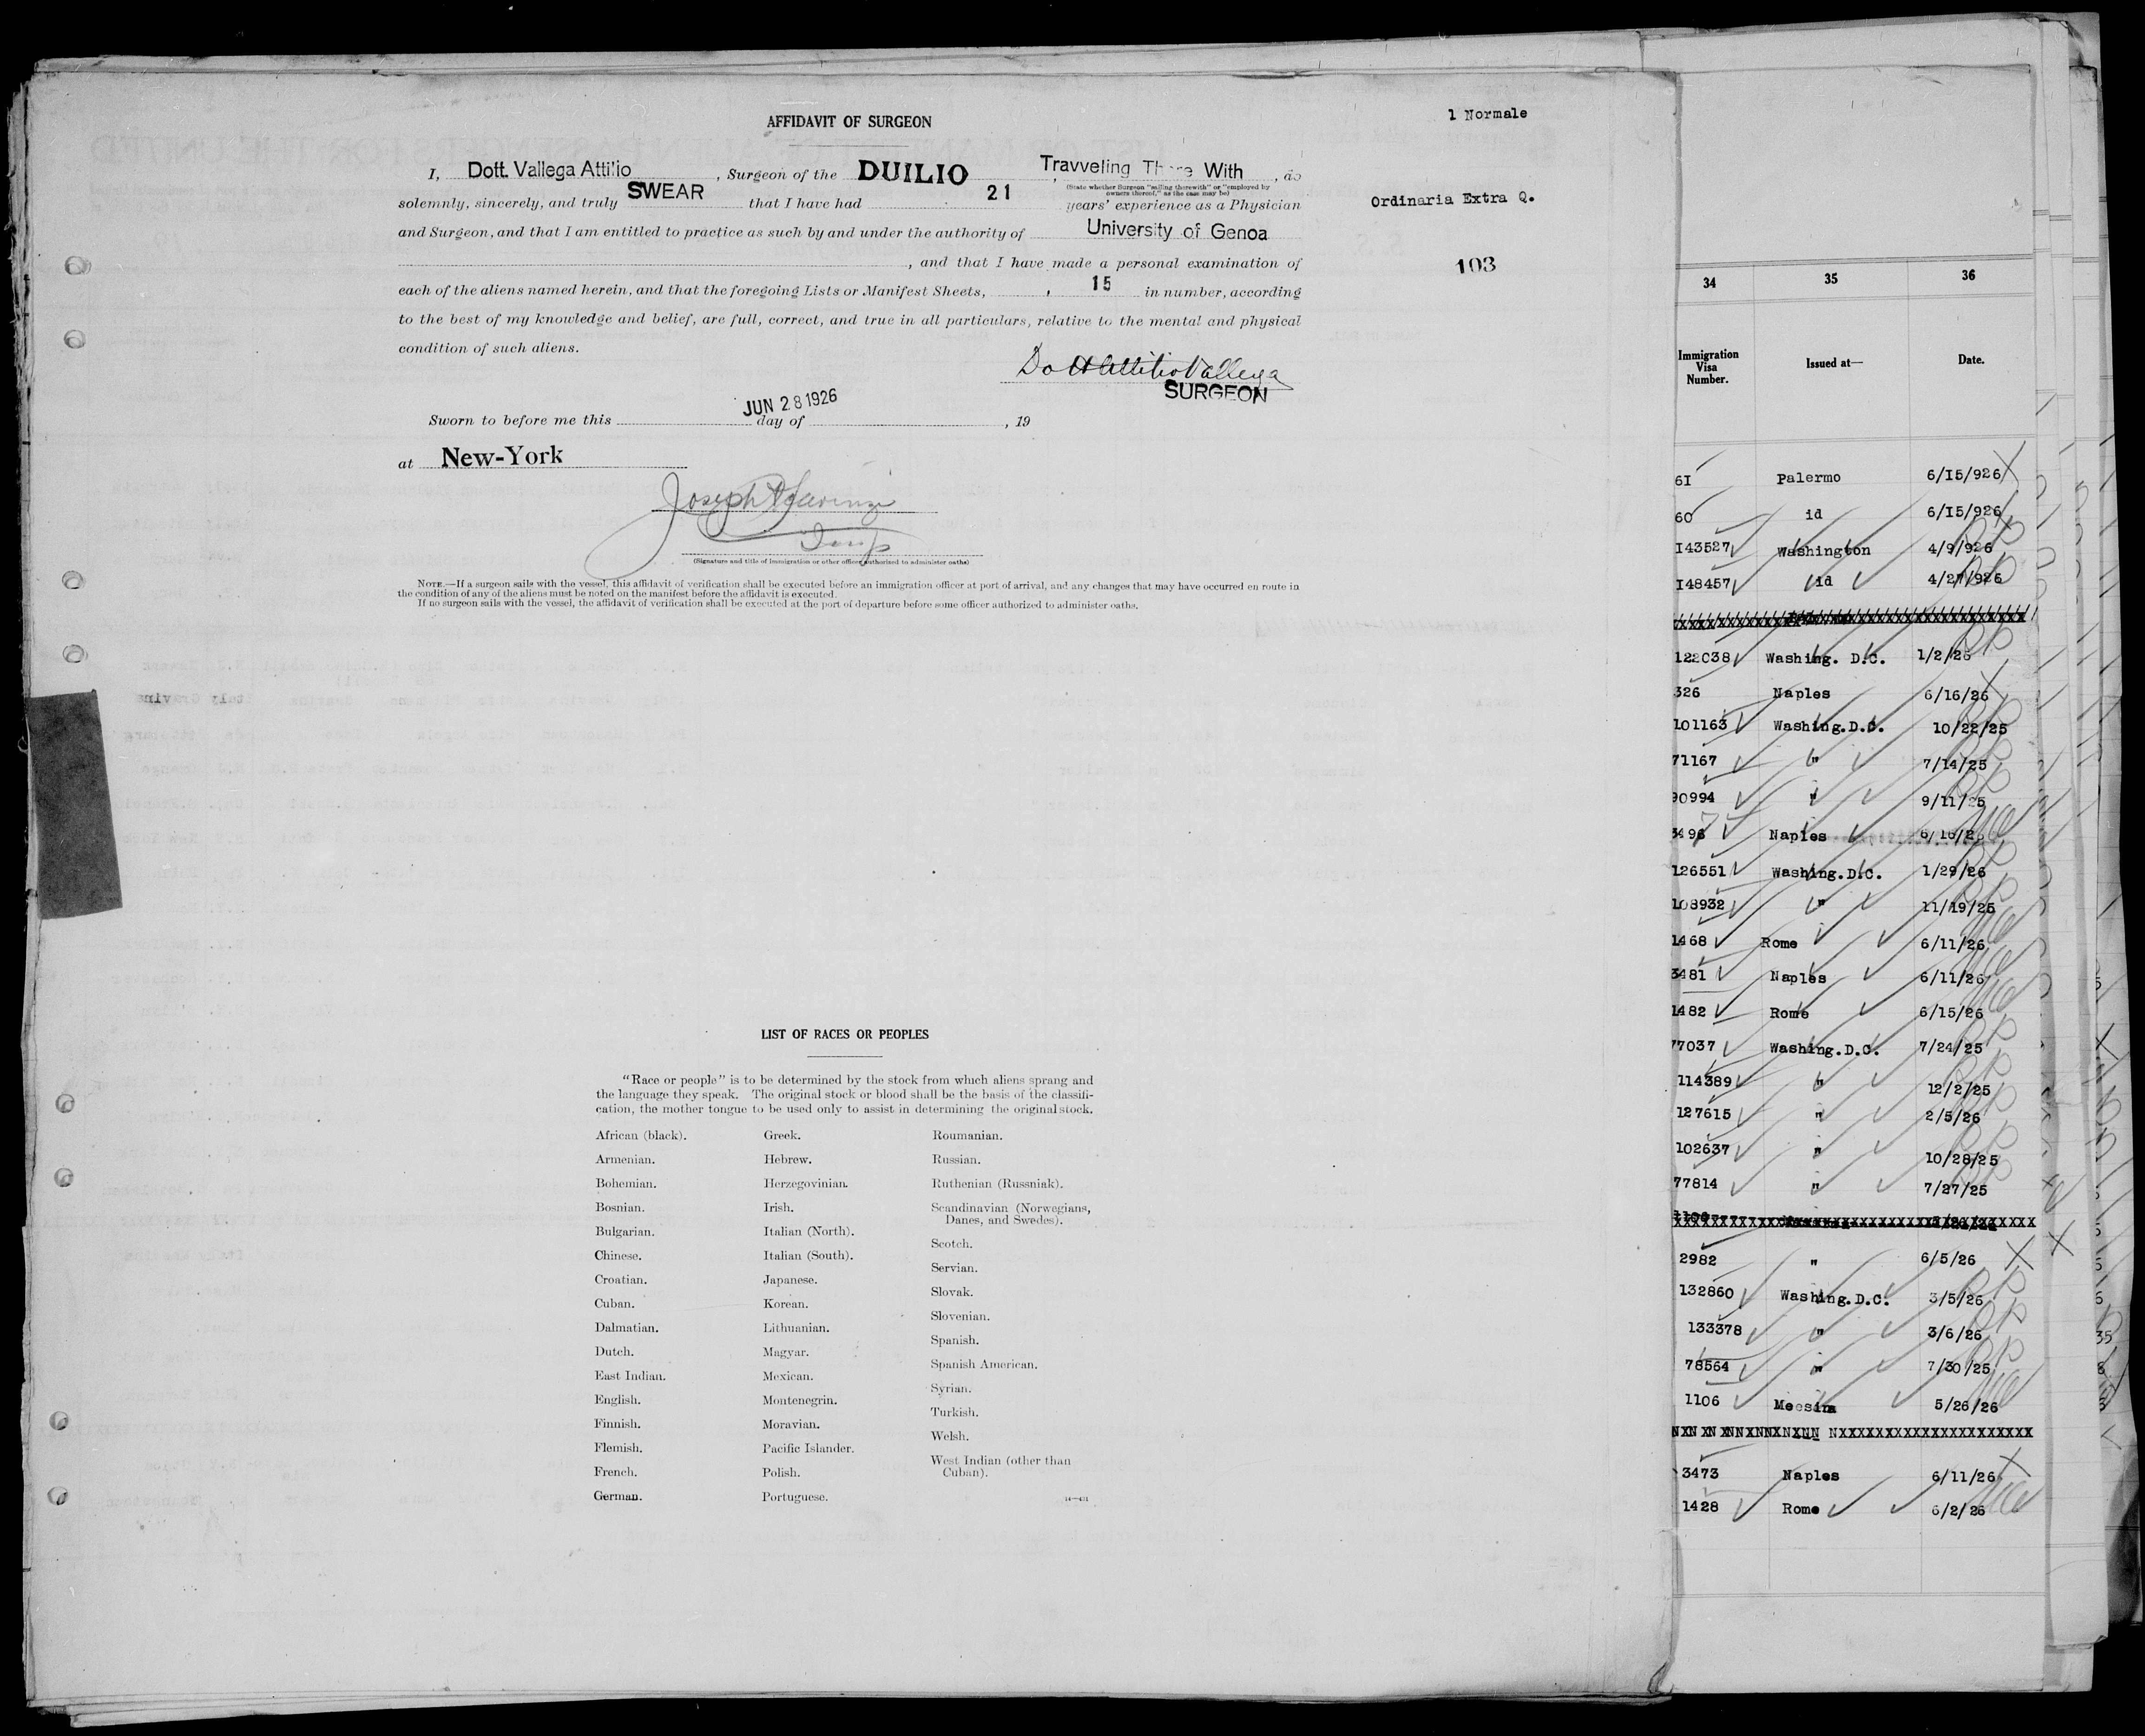 AFFIDAVIT OF SURGEON
1 Normale
I, Dott. Vallega Attilio, Surgeon of the DUILIO Travveling There With, do
(State whether Surgeon "sailing therewith" or "employed by owners thereof," as the case may be)
solemnly, sincerely, and truly SWEAR that I have had 21 years' experience as a Physician
Ordinaria Extra Q.
and Surgeon, and that I am entitled to practice as such by and under the authority of University of Genoa
, and that I have made a personal examination of
103
each of the aliens named herein, and that the foregoing Lists or Manifest Sheets, 15 in number, according
to the best of my knowledge and belief, are full, correct, and true in all particulars, relative to the mental and physical
condition of such aliens.
Dott Attilio Vallega
SURGEON
JUN 28 1926
Sworn to before me this day of , 19
at New-York
Joseph
Insp
(Signature and title of immigration or other officer authorized to administer oaths)
NOTE.—If a surgeon sails with the vessel, this affidavit of verification shall be executed before an immigration officer at port of arrival, and any changes that may have occurred en route in
the condition of any of the aliens must be noted on the manifest before the affidavit is executed.
If no surgeon sails with the vessel, the affidavit of verification shall be executed at the port of departure before some officer authorized to administer oaths.
LIST OF RACES OR PEOPLES
"Race or people" is to be determined by the stock from which aliens sprang and
the language they speak. The original stock or blood shall be the basis of the classifi-
cation, the mother tongue to be used only to assist in determining the original stock.
African (black).
Armenian.
Bohemian.
Bosnian.
Bulgarian.
Chinese.
Croatian.
Cuban.
Dalmatian.
Dutch.
East Indian.
English.
Finnish.
Flemish.
French.
German.
Greek.
Hebrew.
Herzegovinian.
Irish.
Italian (North).
Italian (South).
Japanese.
Korean.
Lithuanian.
Magyar.
Mexican.
Montenegrin.
Moravian.
Pacific Islander.
Polish.
Portuguese.
Roumanian.
Russian.
Ruthenian (Russniak).
Scandinavian (Norwegians,
Danes, and Swedes).
Scotch.
Servian.
Slovak.
Slovenian.
Spanish.
Spanish American.
Syrian.
Turkish.
Welsh.
West Indian (other than
Cuban).
34 35 36
Immigration Visa Number. Issued at— Date.
61 Palermo 6/15/926
60 id 6/15/926
143527 Washington 4/9/926
148457 id 4/27/926
122038 Washing. D.C. 1/2/26
326 Naples 6/16/26
101163 Washing.D.C. 10/22/25
71167 " 7/14/25
90994 " 9/11/25
3496 Naples 6/16/26
126551 Washing.D.C. 1/29/26
108932 " 11/19/25
1468 Rome 6/11/26
3481 Naples 6/11/26
1482 Rome 6/15/26
77037 Washing.D.C. 7/24/25
114389 " 12/2/25
127615 " 2/5/26
102637 " 10/28/25
77814 " 7/27/25
2982 " 6/5/26
132860 Washing.D.C. 3/5/26
133378 " 3/6/26
78564 " 7/30/25
1106 Messina 5/26/26
3473 Naples 6/11/26
1428 Rome 6/2/26